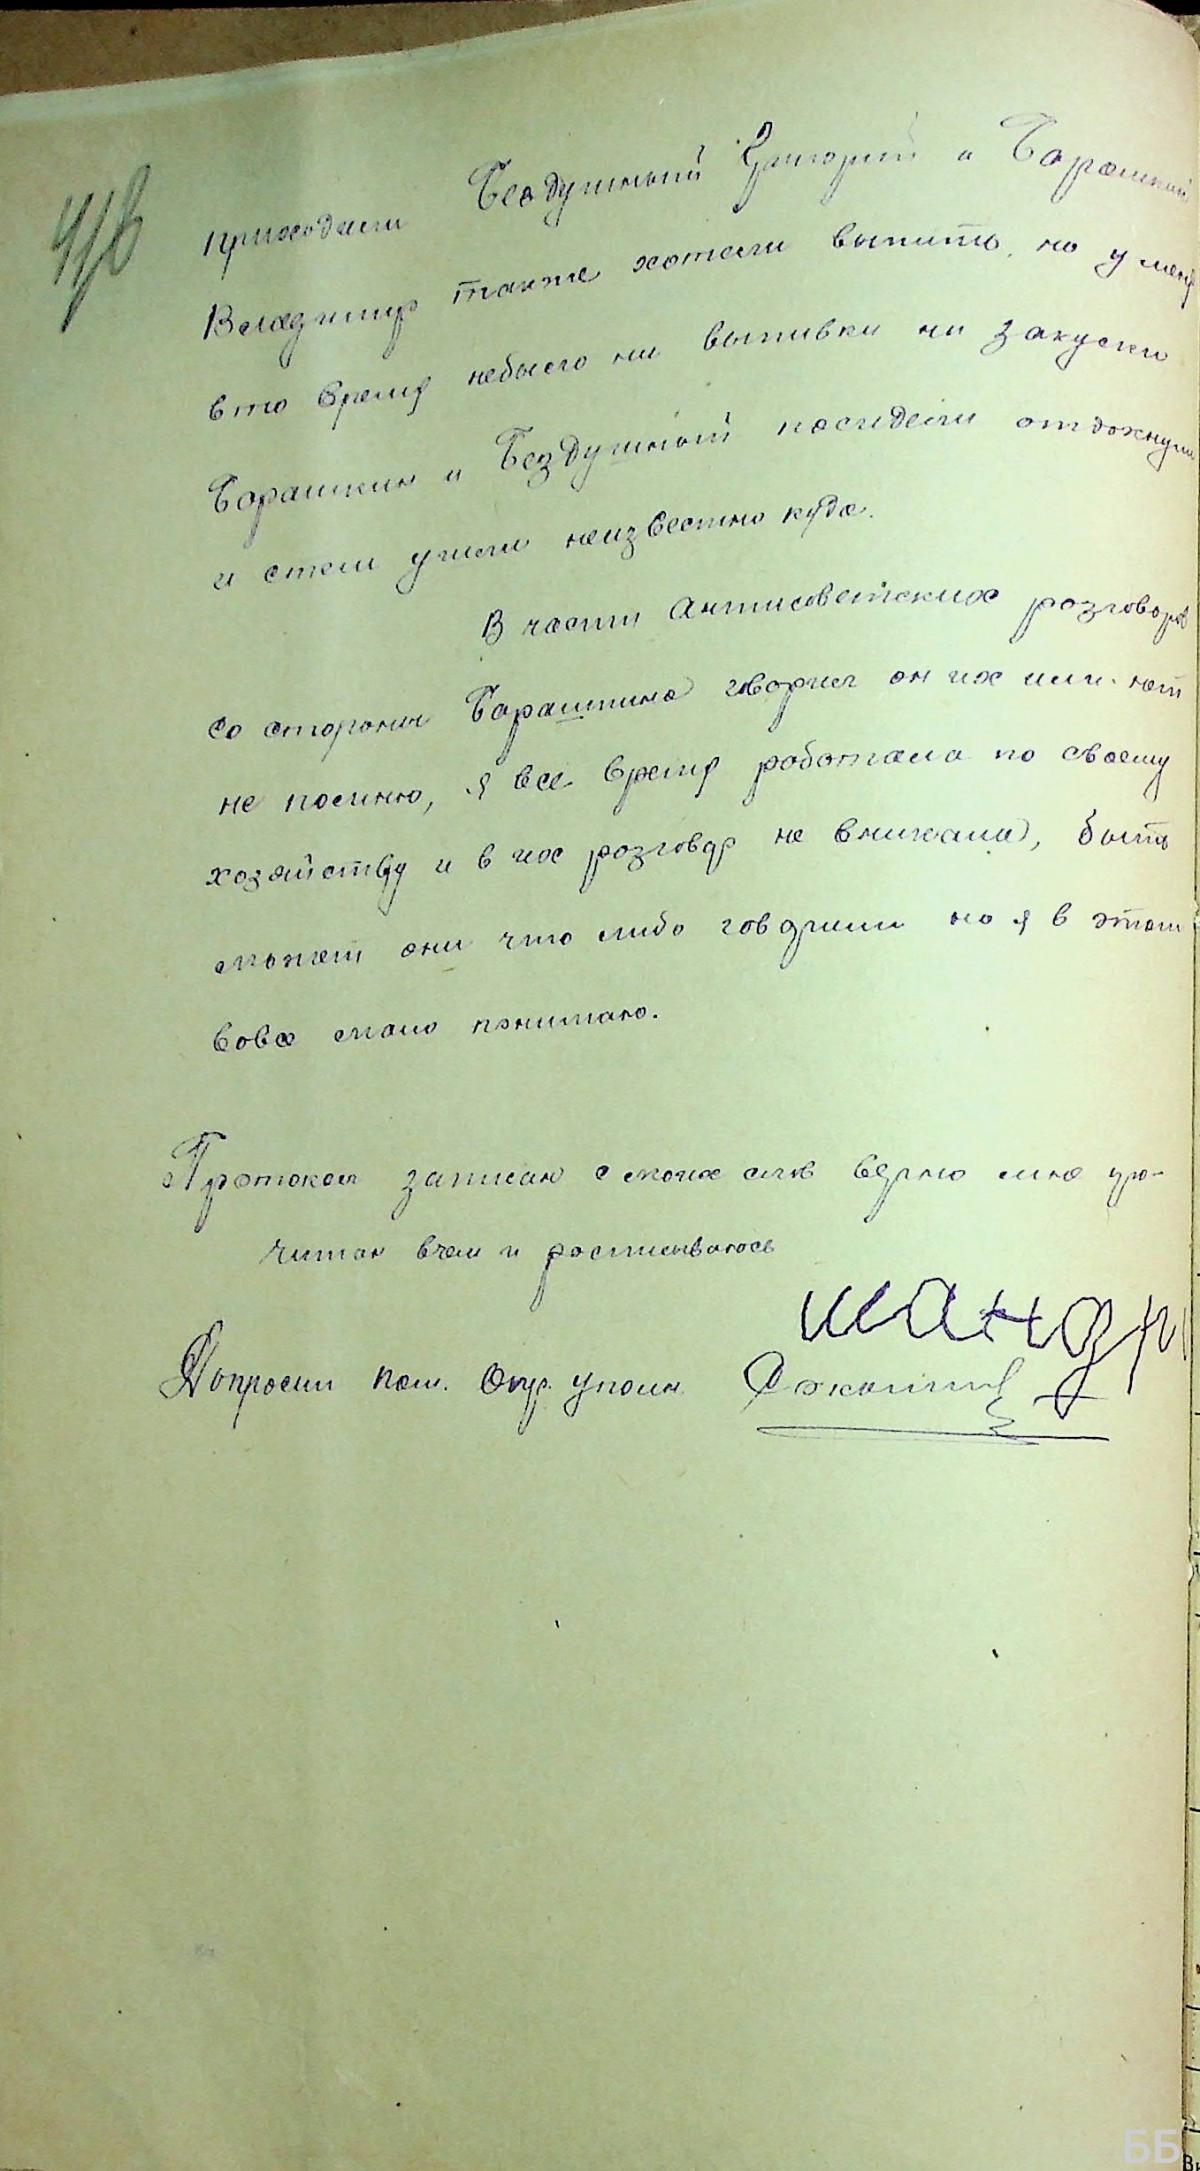 приходили Бездушный Григорий и Барашкин
Владимир также хотели выпить, но у меня
вто время небыло ни выпивки ни закуски
Барашкин и Бездушный посидели отдохнули
и стем ушли неизвестно куда.
В части антисоветских розговоров
со стороны Барашкина говорил он их или нет
не помню, я все время работала по своему
хозяйству и в их розговор не вникала, быть
может они что либо говорили но я в этом
вовсе мало понимаю.
Протокол записан с моих слов верно мне про-
читан вчем и росписываюсь
Допросил пом. Опер. уполн.
ББ